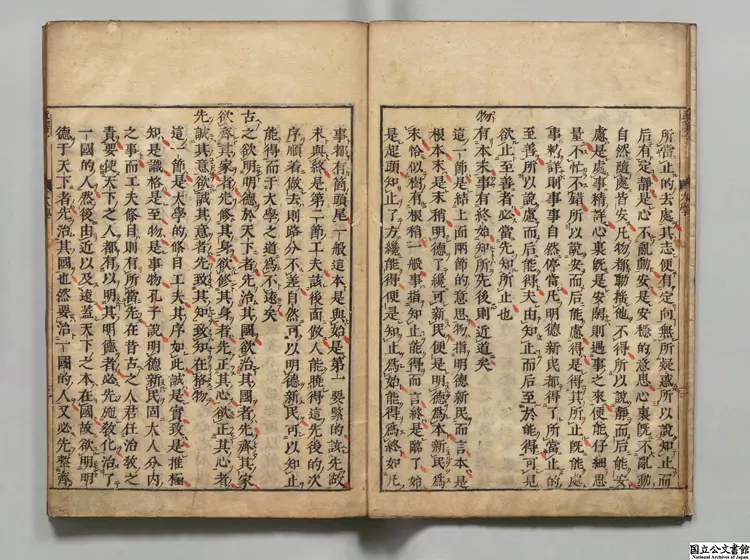 所當止的去處其志便有定向無所疑惑所以說知止而
后有定靜是心不亂動安是安穩的意思心裏既不亂動
自然隨處皆安凡物都動搖他不得所以說靜而后能安
慮是處事精詳心裏既是安閒則遇事之來便能仔細思
量不忙不錯所以說安而后能慮得是得其所止既能處
事精詳則事事自然停當凡明德新民都得了所當止的
至善所以說慮而后能得夫由知止而后至於能得可見
欲止至善者必當先知所止也
物有本末事有終始知所先後則近道矣
這一節是結上面兩節的意思物指明德新民而言本是
根本末是末稍明德了纔可新民便是明德為本新民為
末恰似樹有根稍一般事指知止能得而言終是臨了始
是起頭知止了方纔能得便是知止為始能得為終如凡
事都有箇頭尾一般這本是與始是第一要緊的該先做
末與終是第二節工夫該後面做人能曉得這先後的次
序順着做去則路分不差自然可以明德新民可以知止
能得而于大學之道為不遠矣
古之欲明明德於天下者先治其國欲治其國者先齊其家
欲齊其家者先修其身欲修其身者先正其心欲正其心者
先誠其意欲誠其意者先致其知致知在格物
這一節是大學的條目工夫其序如此誠是實致是推極
知是識格是至物是事物孔子說明德新民固大人分內
之事而工夫條目則有所當先在昔古之人君任治教之
責要使天下之人都有以明其明德者必先施教化治了
一國的人然後由近以及遠蓋天下之本在國故欲明明
德于天下者先治其國也然要治一國的人又必先整齊
国立公文書館
National Archives of Japan